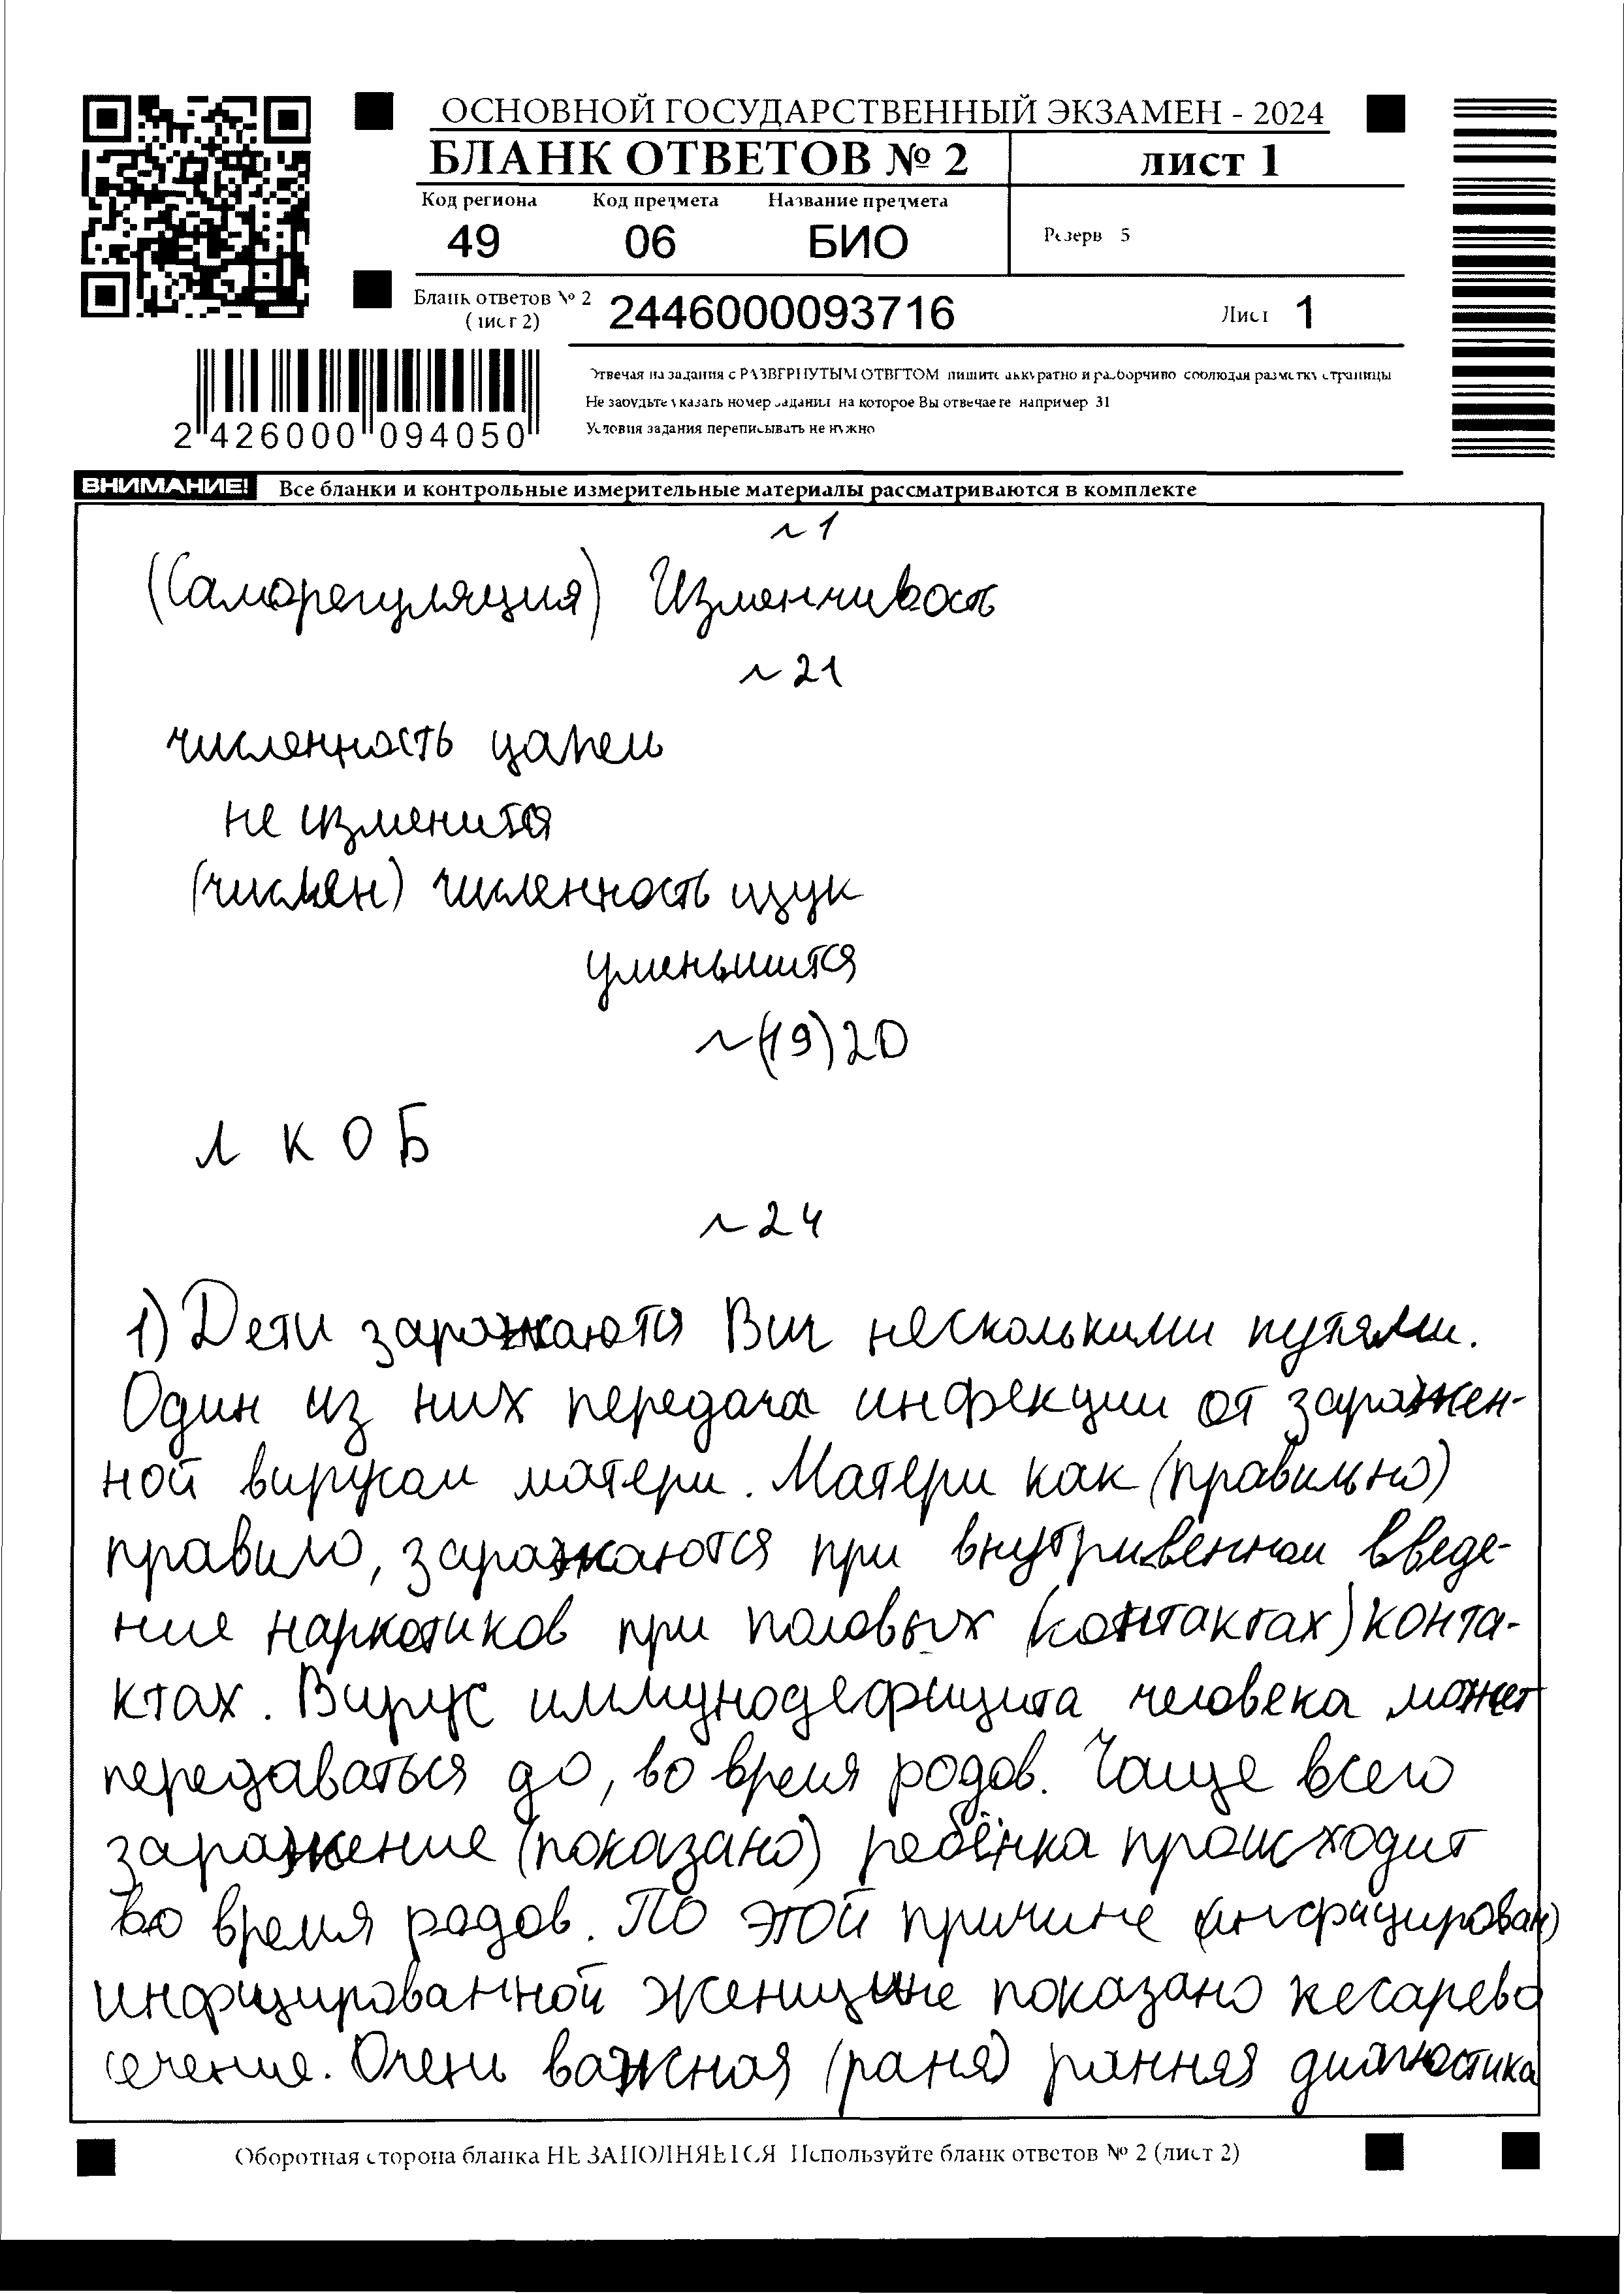 ОСНОВНОЙ ГОСУДАРСТВЕННЫЙ ЭКЗАМЕН - 2024
БЛАНК ОТВЕТОВ № 2
лист 1
Код региона Код предмета Название предмета
49 06 БИО
Резерв 5
Бланк ответов № 2
(лист 2)
2446000093716
Лист 1
2 426000 094050
Отвечая на задания с РАЗВЕРНУТЫМ ОТВЕТОМ пишите аккуратно и разборчиво соблюдая разметку страницы
Не забудьте указать номер задания на которое Вы отвечаете например 31
Условия задания переписывать не нужно
ВНИМАНИЕ! Все бланки и контрольные измерительные материалы рассматриваются в комплекте
~1
(Саморегуляция) Изменчивость
~21
численность цапель
не изменится
(числен) численность щук
уменьшится
~(19)20
Л К О Б
~24
1) Дети заражаются Вич несколькими путями.
Один из них передача инфекции от заражен-
ной вирусом матери. Матери как (правильно)
правило, заражаются при внутривенном введе-
ние наркотиков при половых (контактах) конта-
ктах. Вирус иммунодефицита человека может
передаваться до, во время родов. Чаще всего
заражение (показано) ребёнка происходит
во время родов. По этой причине (инфицирован)
инфицированной женщине показано кесарево
сечение. Очень важная (раня) ранняя диагностика
Оборотная сторона бланка НЕ ЗАПОЛНЯЕТСЯ Используйте бланк ответов № 2 (лист 2)